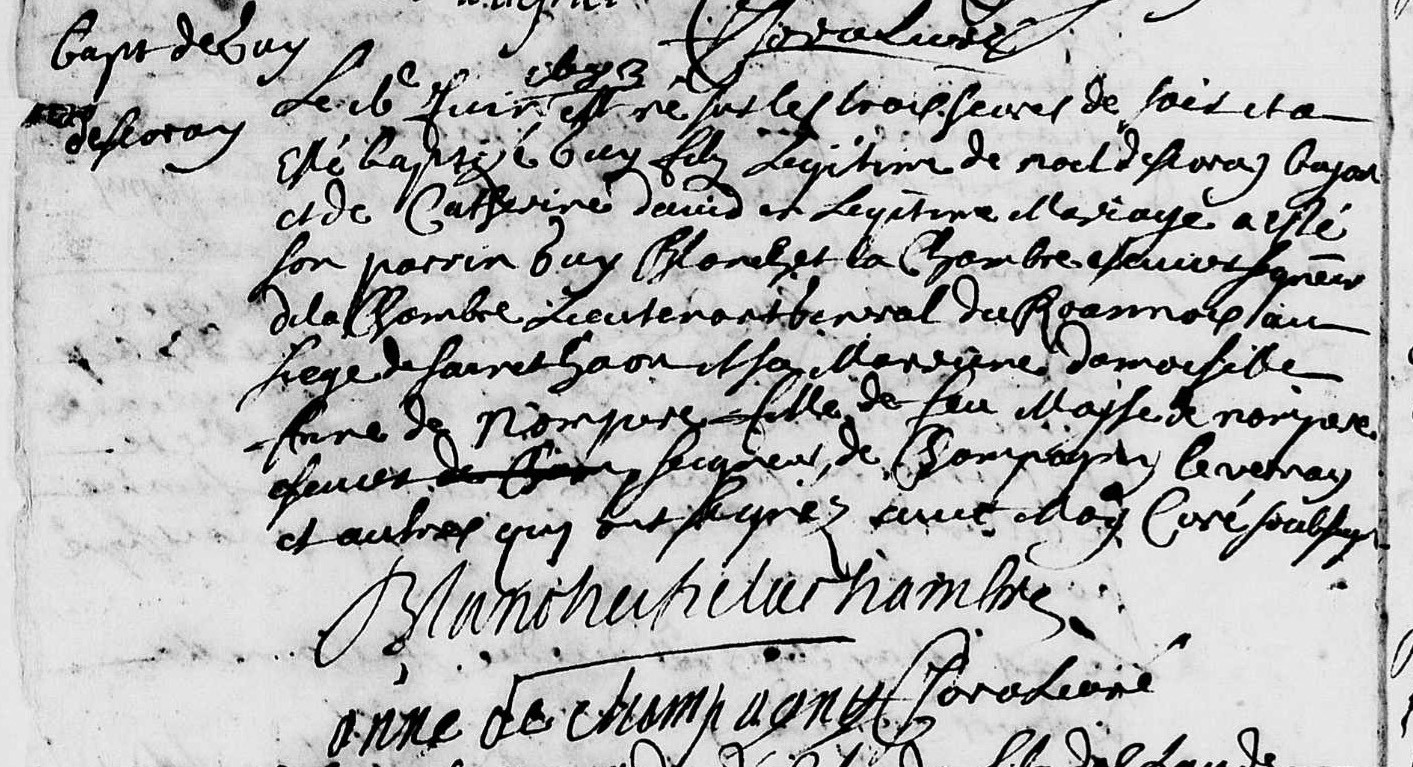 bapt de Guy
desforay
Le 16e Juin est né sur les trois heures de soir et a
esté baptizé Guy filz Legitime de noel desforay
et de Catherine david en Legitime Mariage a esté
son parrin Guy Blanchet la Chambre escuier seigneur
de la Chambre Lieutenant general du Roannois au
siege de sainct haon et sa Marrine damoiselle
Anne de Nompere fille de feu de nompere
escuier seigneur de Champagny le vernay
et autres quy ont signez avec Moy Curé soubsigné
Blanchet de la Chambre
anne de champagny